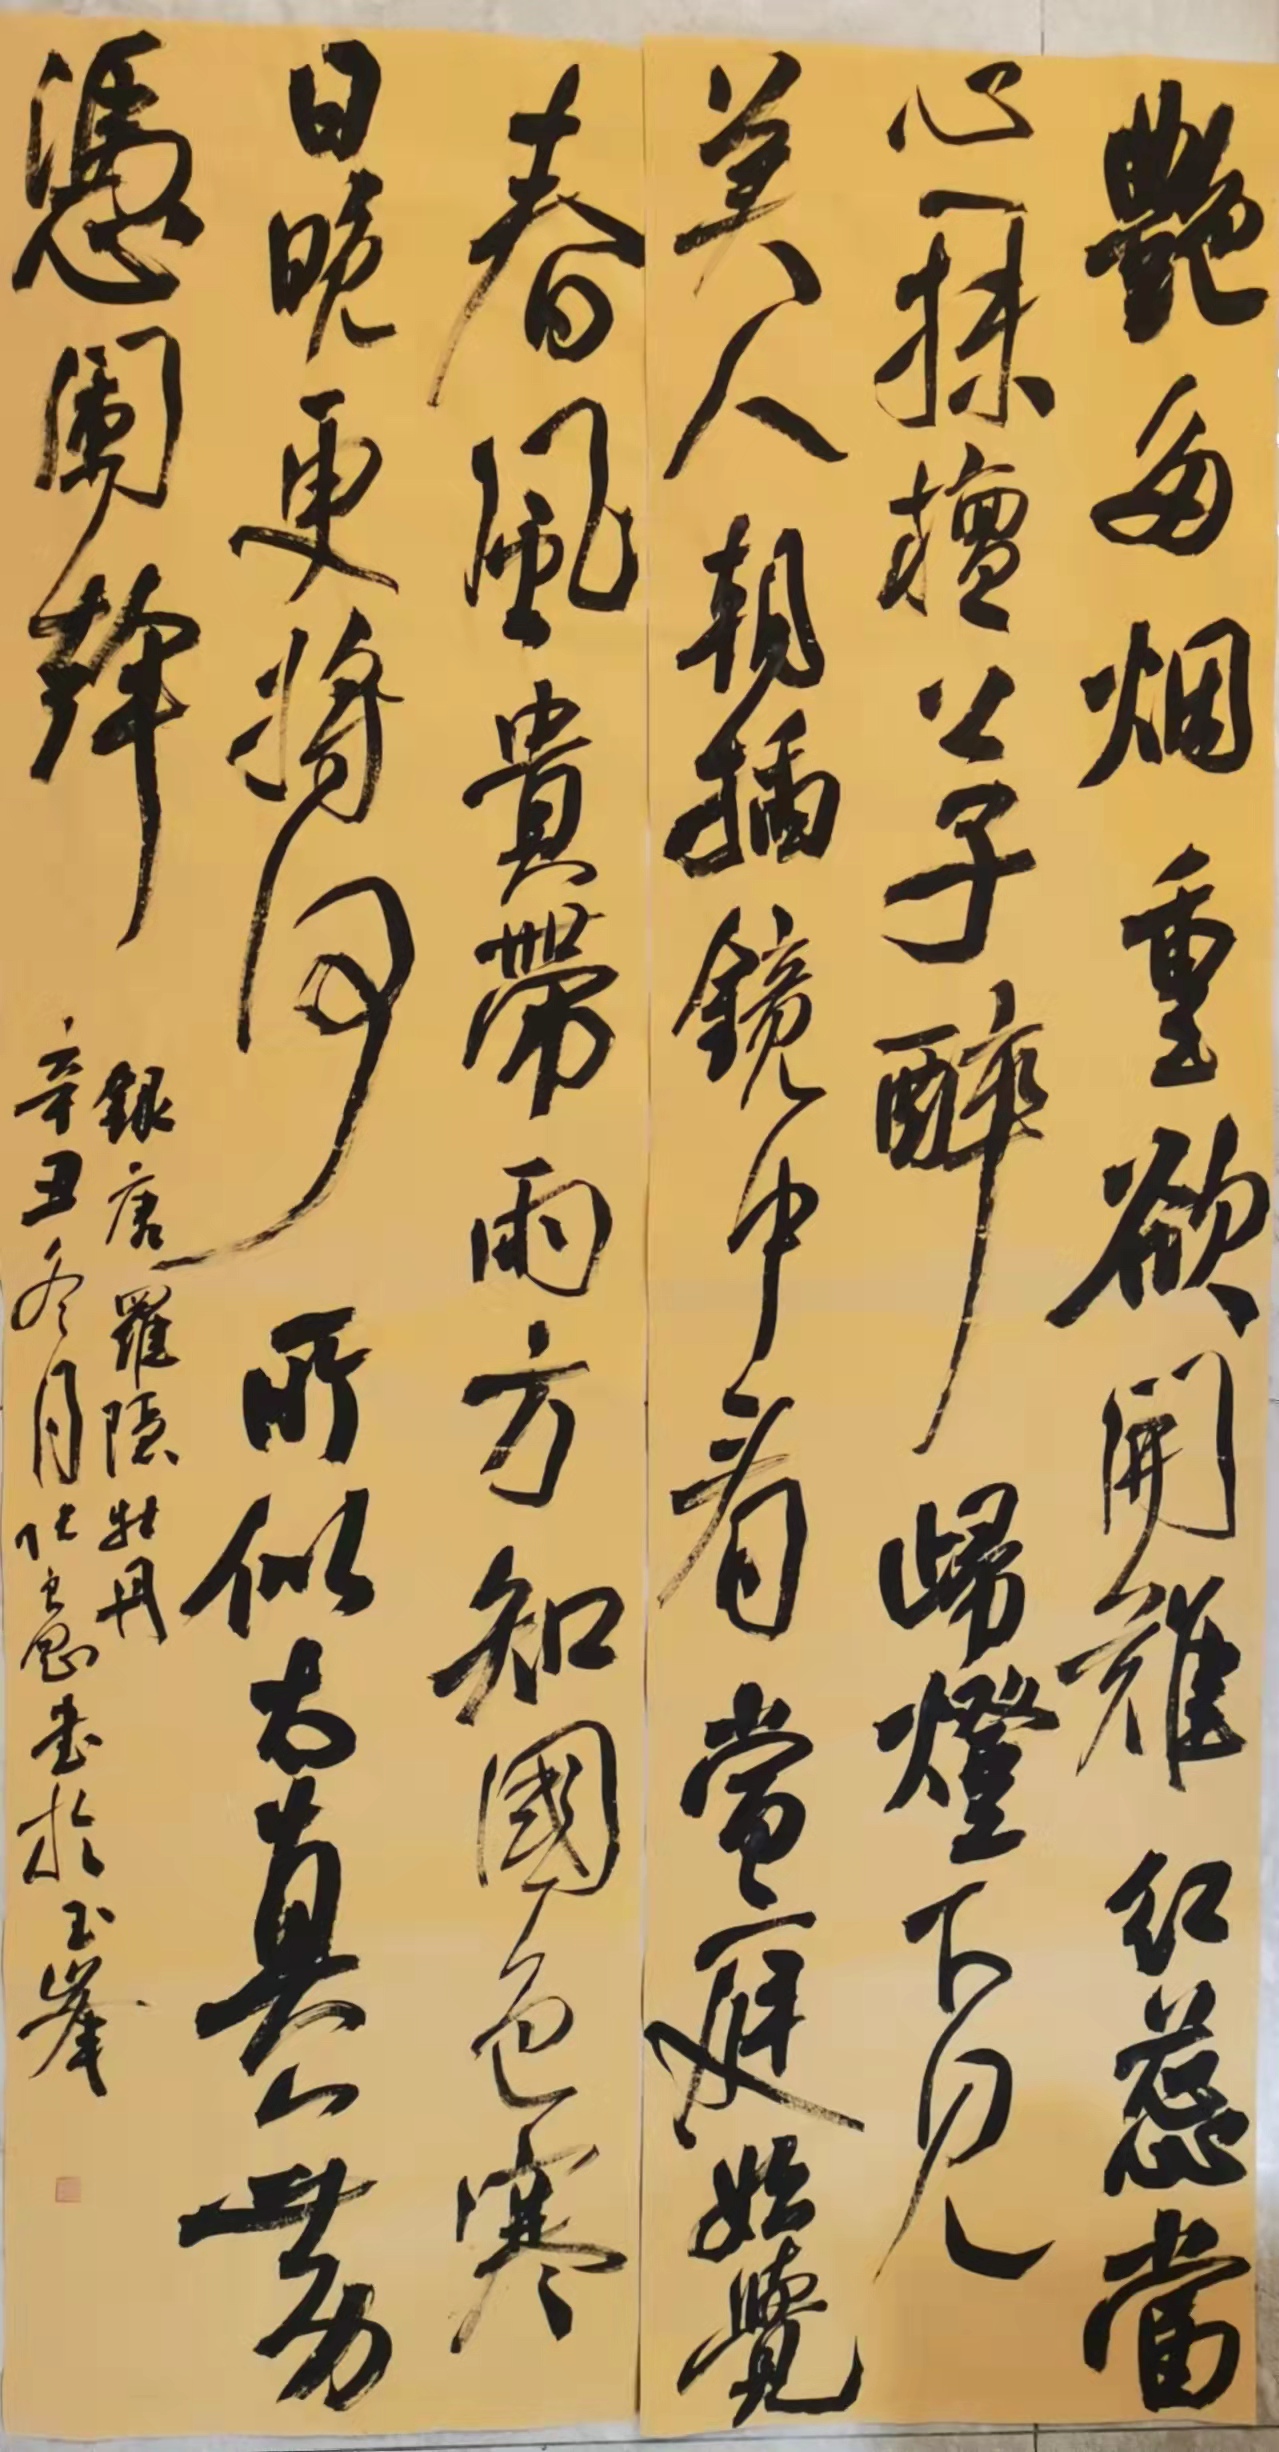 艷多烟重欲開難红蕊當
心一抹檀公子醉歸燈下見
美人朝插鏡中看當庭始覺
春風貴帶雨方知國色寒
日晚更將何所似太真無力
憑闌幹
録唐羅隱牡丹
辛丑冬月書於玉峯